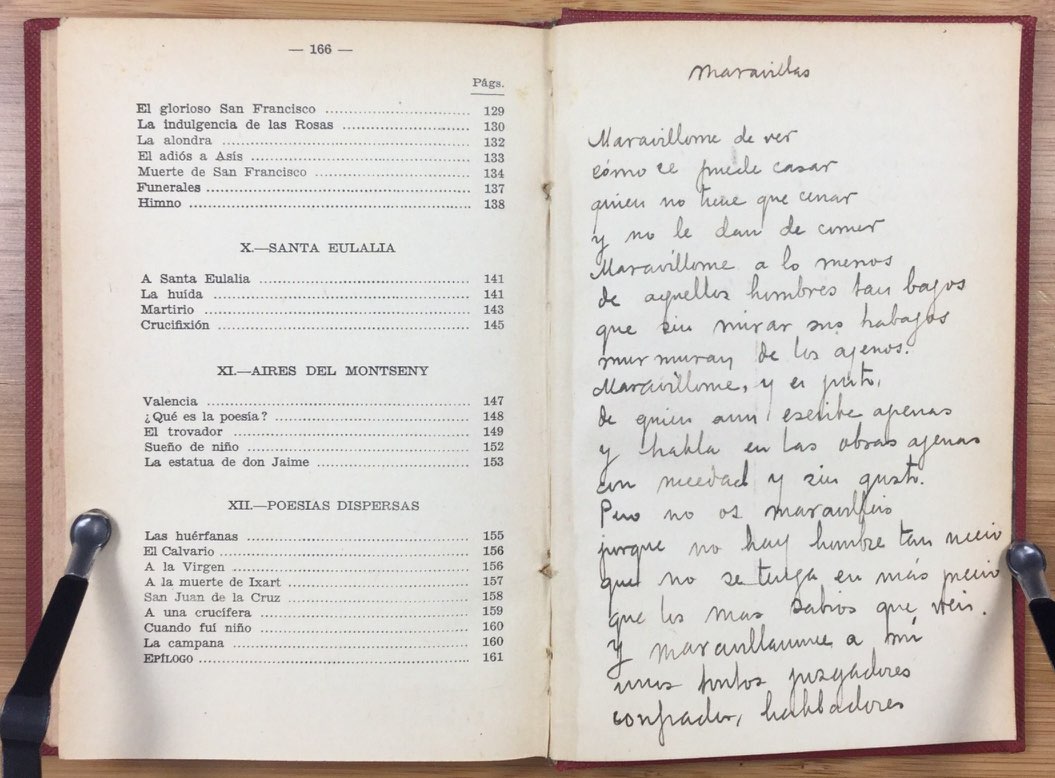 — 166 —
Págs.
El glorioso San Francisco ........ 129
La indulgencia de las Rosas ........ 130
La alondra ........ 132
El adiós a Asís ........ 133
Muerte de San Francisco ........ 134
Funerales ........ 137
Himno ........ 138
X.—SANTA EULALIA
A Santa Eulalia ........ 141
La huída ........ 141
Martirio ........ 143
Crucifixión ........ 145
XI.—AIRES DEL MONTSENY
Valencia ........ 147
¿Qué es la poesía? ........ 148
El trovador ........ 149
Sueño de niño ........ 152
La estatua de don Jaime ........ 153
XII.—POESIAS DISPERSAS
Las huérfanas ........ 155
El Calvario ........ 156
A la Virgen ........ 156
A la muerte de Ixart ........ 157
San Juan de la Cruz ........ 158
A una crucífera ........ 159
Cuando fuí niño ........ 160
La campana ........ 160
EPÍLOGO ........ 161
Maravillas
Maravillome de ver
cómo se puede casar
quien no tiene que cenar
y no le dan de comer
Maravillome a lo menos
de aquellos hombres tan bagos
que sin mirar sus
murmuran de los ajenos.
Maravillome, y es justo,
de quien aun escribe apenas
y habla en las obras ajenas
con necedad y sin gusto.
Pero no os maravilleis
porque no hay hombre tan necio
que no se tenga en más precio
que los mas sabios que veis.
y maravillanme a mí
unos tontos juzgadores
habladores